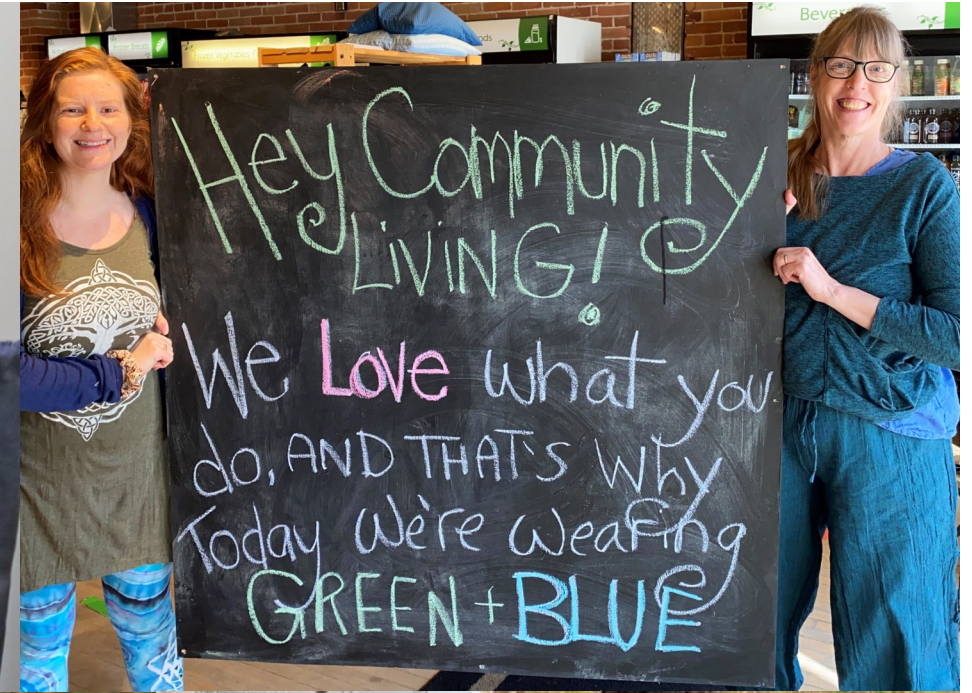 Bever
Hey Community
LIVING!
We Love what you
do, AND THAT'S Why
Today We're Wearing
GREEN + BLUE